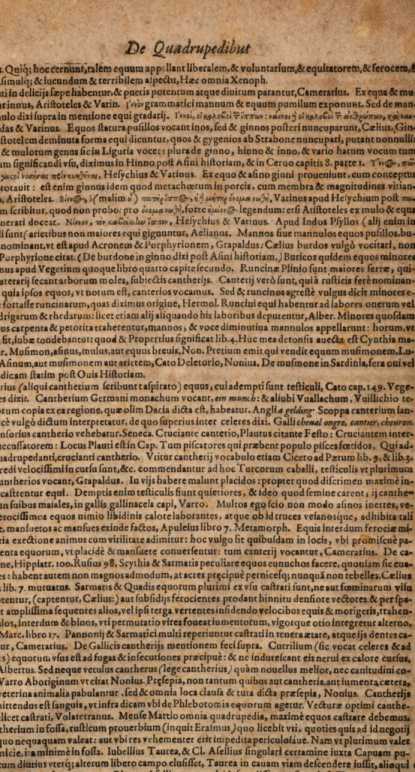 De Quadrupedibus
Quiq; hoc cernunt, talem equum appellant liberalem, & voluntarium, & equitatorem, & ferocem, &
simulq; & iucundum & terribilem aspectu, Hæc omnia Xenoph.
ni in delicijs sæpe habentur, & pueris potentum atque diuitum parantur, Camerarius. Ex equa & mu
rinnus, Aristoteles & Varin. grammatici mannum & equum pumilum exponunt. Sed de man
nulo dixi supra in mentione equi gradarij.
das & Varinus. Equos statura pusillos vocant inos, sed & ginnos posteri nuncuparunt, Cælius, Gin
stotelem deminuta forma equi dicuntur, quos & gygenios ab Strabone nuncupari, putant nonnulli
& mulorum genus sic in Liguria vocet; plura de ginno, hinno & inno, & vario harum vocum tum
um significandi vsu, diximus in Hinno post Asini historiam, & in Ceruo capitis 8. parte 1.
Hesychius & Varinus. Ex equo & asino ginni proueniunt, cum conceptus
rotauit: est enim ginnus idem quod metachœrum in porcis, cum membra & magnitudines vitian
s, Aristoteles. Varinus apud Hesychium post
us scribitur, quod non probo; pro legendum: est Aristoteles ex mulo & equa
nerati doceat. Hesychius & Varinus. Apud Indos Psyllos (alij enim in
ii sunt) arietibus non maiores equi gignuntur, Aelianus. Mannos siue mannulos equos pusillos, bu
nominant, vt est apud Acronem & Porphyrionem, Grapaldus: Cælius burdos vulgò vocitari, non
Porphyrione citat. (De burdone in ginno dixi post Asini historiam.) Buricos quidem equos minores
nus apud Vegetium quoque libro quarto capite secundo. Runcinæ Plinio sunt maiores serræ, qui
ateterij secant arborum moles, subiectis cantherijs. Canterij verò sunt, qui à rusticis ferè nominan
quia ipsos equos, vt notum est, canterios vocamus. Sed & runcinos agrestè vulgus dicit minores
fortasse runcinatum, quas diximus origine, Hermol. Runcini equi habentur ad labores onerum vel
drigarum & rhedarum: licet etiam alij aliquando his laboribus deputentur, Alber. Minores quosdam
us carpenta & petorita trahentur, mannos, & voce diminutiua mannulos appellarunt: horum, vt
fit, iubæ tondebantur: quod & Propertius significat lib. 4. Huc mea detonsis auecta est Cynthia ma-
r. Musimon, asinus, mulus, aut equus breuis, Non. Pretium emit qui vendit equum musimonem, Lu-
Asinum, aut musimonem aut arietem, Cato Deletorio, Nonius. De musmone in Sardinia, fera oui vel
dicam statim post Ouis Historiam.
rius (aliqui cantherium scribunt t aspirato) equus, cui adempti sunt testiculi, Cato cap. 149. Vege-
es dixit. Cantherium Germani monachum vocant, ein münch: & aliubi Vuallachum, Vuillichio te-
tum copia ex ea regione, quæ olim Dacia dicta est, habeatur. Angli a gelding. Scoppa canterium ian-
cè vulgò dictum interpretatur, de quo superius inter celeres dixi. Galli cheual ongre, cantier, cheuron.
intorius cantherio vehebatur, Seneca. Cruciante canterio, Plautus citante Festo: Cruciantem inter-
necessatorem: Locus Plauti est in Cap. Tum piscatores qui præbent populo pisces fœtidos, Qui ad-
uadrupedanti, crucianti cantherio. Vtitur cantherij vocabulo etiam Cicero ad Pætum lib. 9. & lib. 3.
redi velocissimi in cursu sunt, &c. commendantur ad hoc Turcorum caballi, testiculis vt plurimum
antherios vocant, Grapaldus. In vijs habere malunt placidos: propter quod discrimen maximè in-
castrentur equi. Demptis enim testiculis fiunt quietiores, & ideo quod semine carent, ij canthe-
n suibus maiales, in gallis gallinaceis capi, Varro. Multos ego scio non modo asinos inertes, ve-
rocissimos equos nimio libidinis calore laborantes, atque ob id truces vesanosque, adhibita tali
e, mansuetos ac mansues exinde factos, Apuleius libro 7. Metamorph. Equis interdum ferociæ mi-
ria exectione animus cum virilitate adimitur: hoc vulgo fit quibusdam in locis, vbi promiscuè pa-
enta equorum, vt placidè & mansuetè conuersentur: tum canterij vocantur, Camerarius. De ca-
ne, Hippiatr. 100. Rufius 98. Scythis & Sarmatis peculiare equos eunuchos facere, quoniam sic eua-
es: habent autem non magnos admodum, at acres præcipuè pernicesq; nunquā non rebelles, Cælius
lib. 7. mutuatus. Sarmatis & Quadis equorum plurimi ex vsu castrati sunt, ne aut fœminarum visu
rantur, (raptentur, Cælius) aut subsidijs ferocientes prodant hinnitu densiore vectores, & per spa-
t amplissima sequentes alios, vel ipsi terga vertentes insidendo velocibus equis & morigeris, trahen-
ulos, interdum & binos, vti permutatio vires foueat iumentorum, vigorque otio integretur alterno,
Marc. libro 17. Pannonij & Sarmatici multi reperiuntur castrati in tenera ætate, atque ijs dentes ca-
ur, Cametatius. De Gallicis cantherijs mentionem feci supra. Currilium (sic vocat celeres & ad
s) equorum vsus est ad fugas & insecutiones præcipuè: & ne indurescant eis nerui ex calore cursus,
Albertus. Sed neque vetulus cantherius (lege cantherius,) quàm nouellus melior, nec canitudini co-
Varro Aboriginum vt citat Nonius. Præsepia, non tantum quibus aut cantheria, aut iumenta, cætera,
veterina animalia pabulantur, sed & omnia loca clausa & tuta dicta præsepia, Nonius. Cantherijs
mittendus est sanguis, vt infra dicam vbi de Phlebotomis equorum agetur. Vecturæ optimi canthe-
ilicet castrati, Volaterranus. Mense Martio omnia quadrupedia, maximè equos castrare debemus.
therium in fossa, rusticum prouerbium (inquit Erasmus,) quo licebit vti, quoties quis ad id negotij
uo nequaquam valeat: aut vbi res vehementer est trepidè ac periculosè. Nam vt plurimum valent
nicie, ita minimè in fossa. Iubellius Taurea, & Cl. Asellius singulari certamine iuxta Capuam pu-
cum diutius vterq; alterum libero campo elusisset, Taurea in cauam viam descendere iussit, alioqui